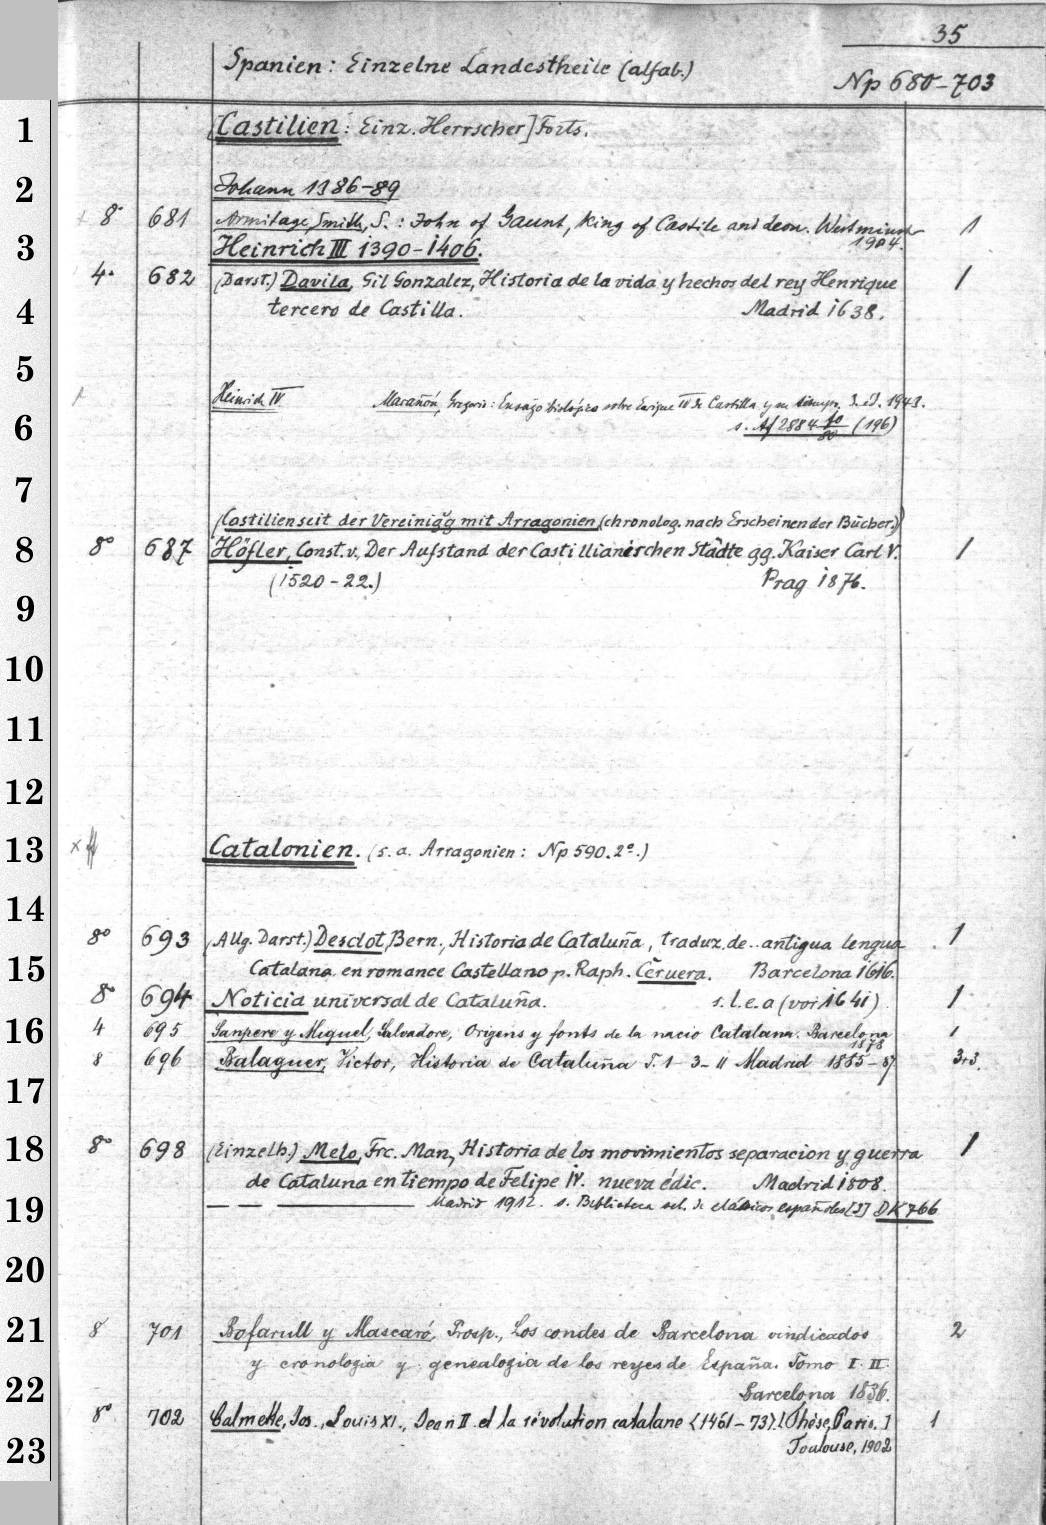 35
Spanien: Einzelne Landestheile (alfab.)
Np 680-703
1
[Castilien: Einz. Herrscher] Forts.
2
Johann 1386-89
8° 681 Armitage, Smith, S.: John of Gaunt, King of Castile and Leon. Westminster 1
1904.
3
Heinrich III 1390-1406.
4° 682 (Darst.) Davila, Gil Gonzalez, Historia de la vida y hechos del rey Henrique 1
4
tercero de Castilla. Madrid 1638.
5
Heinrich IV Marañón, Gregorio: Ensayo biológico sobre Enrique IV de Castilla y su tiempo. 3. ed. 1943.
6
s. Af 2884 (196)
7
(Castilien seit der Vereinigg mit Arragonien (chronolog. nach Erscheinen der Bücher.)
8
8° 687 Höfler, Const. v., Der Aufstand der Castillianischen Städte gg. Kaiser Carl V. 1
(1520-22.) Prag 1876.
9
10
11
12
13
Catalonien. (s. a. Arragonien: Np 590. 2°.)
14
8° 693 (Allg. Darst.) Desclot, Bern., Historia de Cataluña, traduz. de .. antigua lengua 1
15
Catalana en romance Castellano p. Raph. Ceruera. Barcelona 1616.
8° 694 Noticia universal de Cataluña. s. l. e. a (vor 1641) 1
16
4 695 Sanpere y Miquel, Salvadore, Origens y fonts de la nacio Catalana. Barcelona 1
1878
8 696 Balaguer, Victor, Historia de Cataluña T. 1-3-11 Madrid 1885-87 3+3.
17
18
8° 698 (Einzelh.) Melo, Frc. Man., Historia de los movimientos separacion y guerra 1
de Cataluna en tiempo de Felipe IV. nueva édic. Madrid 1808.
19
— — —— Madrid 1912. s. Biblioteca sel. de clásicos españoles [3] DK 766
20
21
8 701 Bofarull y Mascaró, Prosp., Los condes de Barcelona vindicados 2
y cronologia y genealogia de los reyes de España. Tomo I. II.
22
Barcelona 1836.
8° 702 Calmette, Jos., Louis XI., Jean II et la révolution catalane (1461-73). [Thèse, Paris.] 1
23
Toulouse, 1902